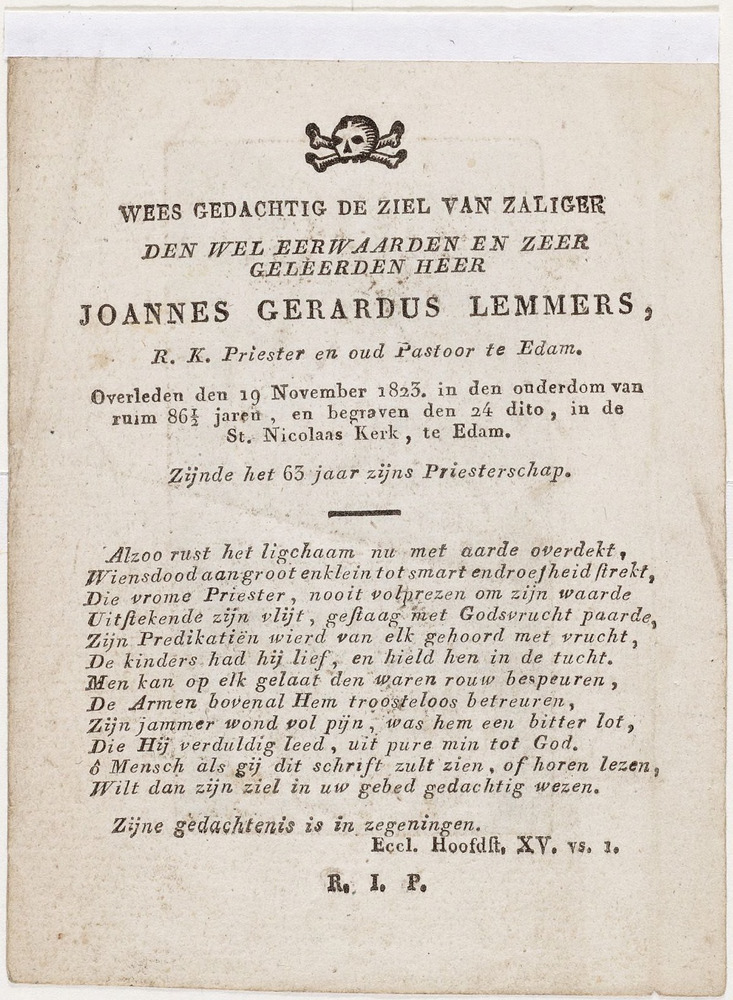 WEES GEDACHTIG DE ZIEL VAN ZALIGER
DEN WEL EERWAARDEN EN ZEER
GELEERDEN HEER
JOANNES GERARDUS LEMMERS,
R. K. Priester en oud Pastoor te Edam.
Overleden den 19 November 1823. in den ouderdom van
ruim 86½ jaren, en begraven den 24 dito, in de
St. Nicolaas Kerk, te Edam.
Zijnde het 63 jaar zijns Priesterschap.
Alzoo rust het ligchaam nu met aarde overdekt,
Wiens dood aan groot en klein tot smart en droefheid ſtrekt,
Die vrome Priester, nooit volprezen om zijn waarde
Uitſtekende zijn vlijt, geſtaag met Godsvrucht paarde,
Zijn Predikatiën wierd van elk gehoord met vrucht,
De kinders had hij lief, en hield hen in de tucht.
Men kan op elk gelaat den waren rouw bespeuren,
De Armen bovenal Hem troosteloos betreuren,
Zijn jammer wond vol pijn, was hem een bitter lot,
Die Hij verduldig leed, uit pure min tot God.
ô Mensch als gij dit schrift zult zien, of horen lezen,
Wilt dan zijn ziel in uw gebed gedachtig wezen.
Zijne gedachtenis is in zegeningen.
Eccl. Hoofdſt. XV. vs. 1.
R. I. P.